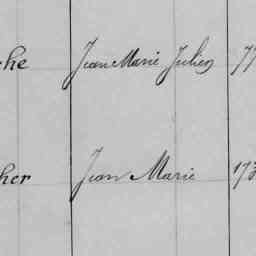 che Jean Marie Julien 77
cher Jean Marie 173